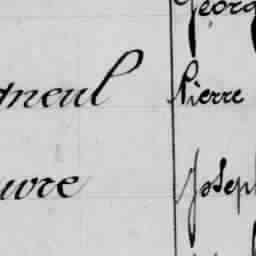 Georg
gneul Pierre
uvre Joseph